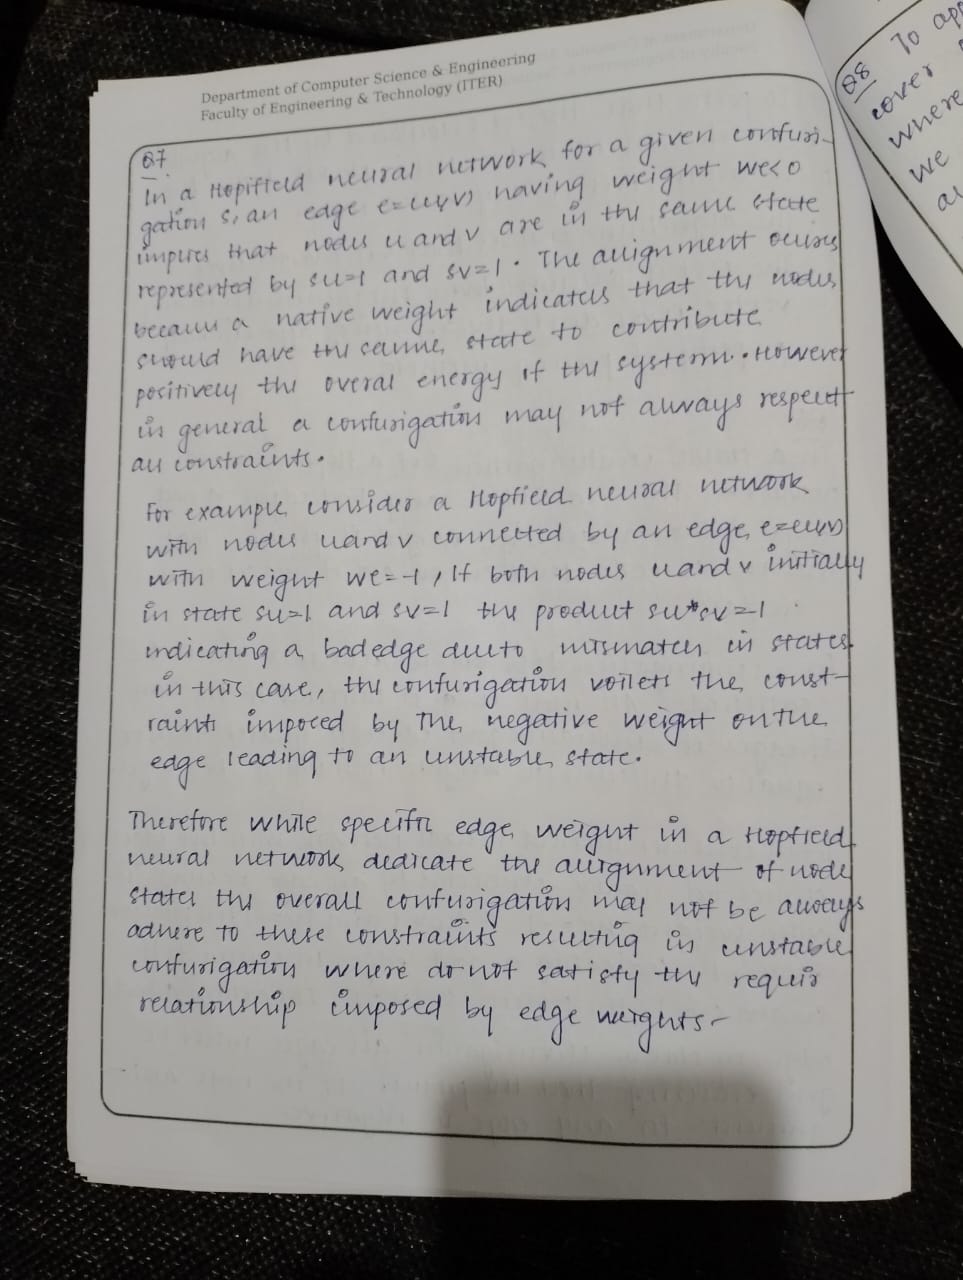 Department of Computer Science & Engineering
Faculty of Engineering & Technology (ITER)
Q7
In a Hopifield neural network for a given confusi-
gation S, an edge e=(u,v) having weight we<0
impires that nodes u and v are in the same state
represented by su=1 and sv=1. The alignment occurs
because a native weight indicates that the nodes
should have the same state to contribute
positively the overal energy of the system. However
in general a confusigation may not always respect
all constraints.
For example consider a Hopfield neural network
with nodes u and v connected by an edge e=(u,v)
with weight we=-1, If both nodes u and v initially
in state su=1 and sv=1 the product su*sv=-1
indicating a bad edge due to mismatch in states
in this case, the confusigation voilets the const-
raints imposed by the negative weight on the
edge leading to an unstable state.
Therefore while specific edge weight in a Hopfield
neural network dedicate the alignment of node
states the overall confusigation may not be always
adhere to these constraints resulting in unstable
confusigation where do not satisfy the requir
relationship imposed by edge weights-
Q8 To app
cover
where
we